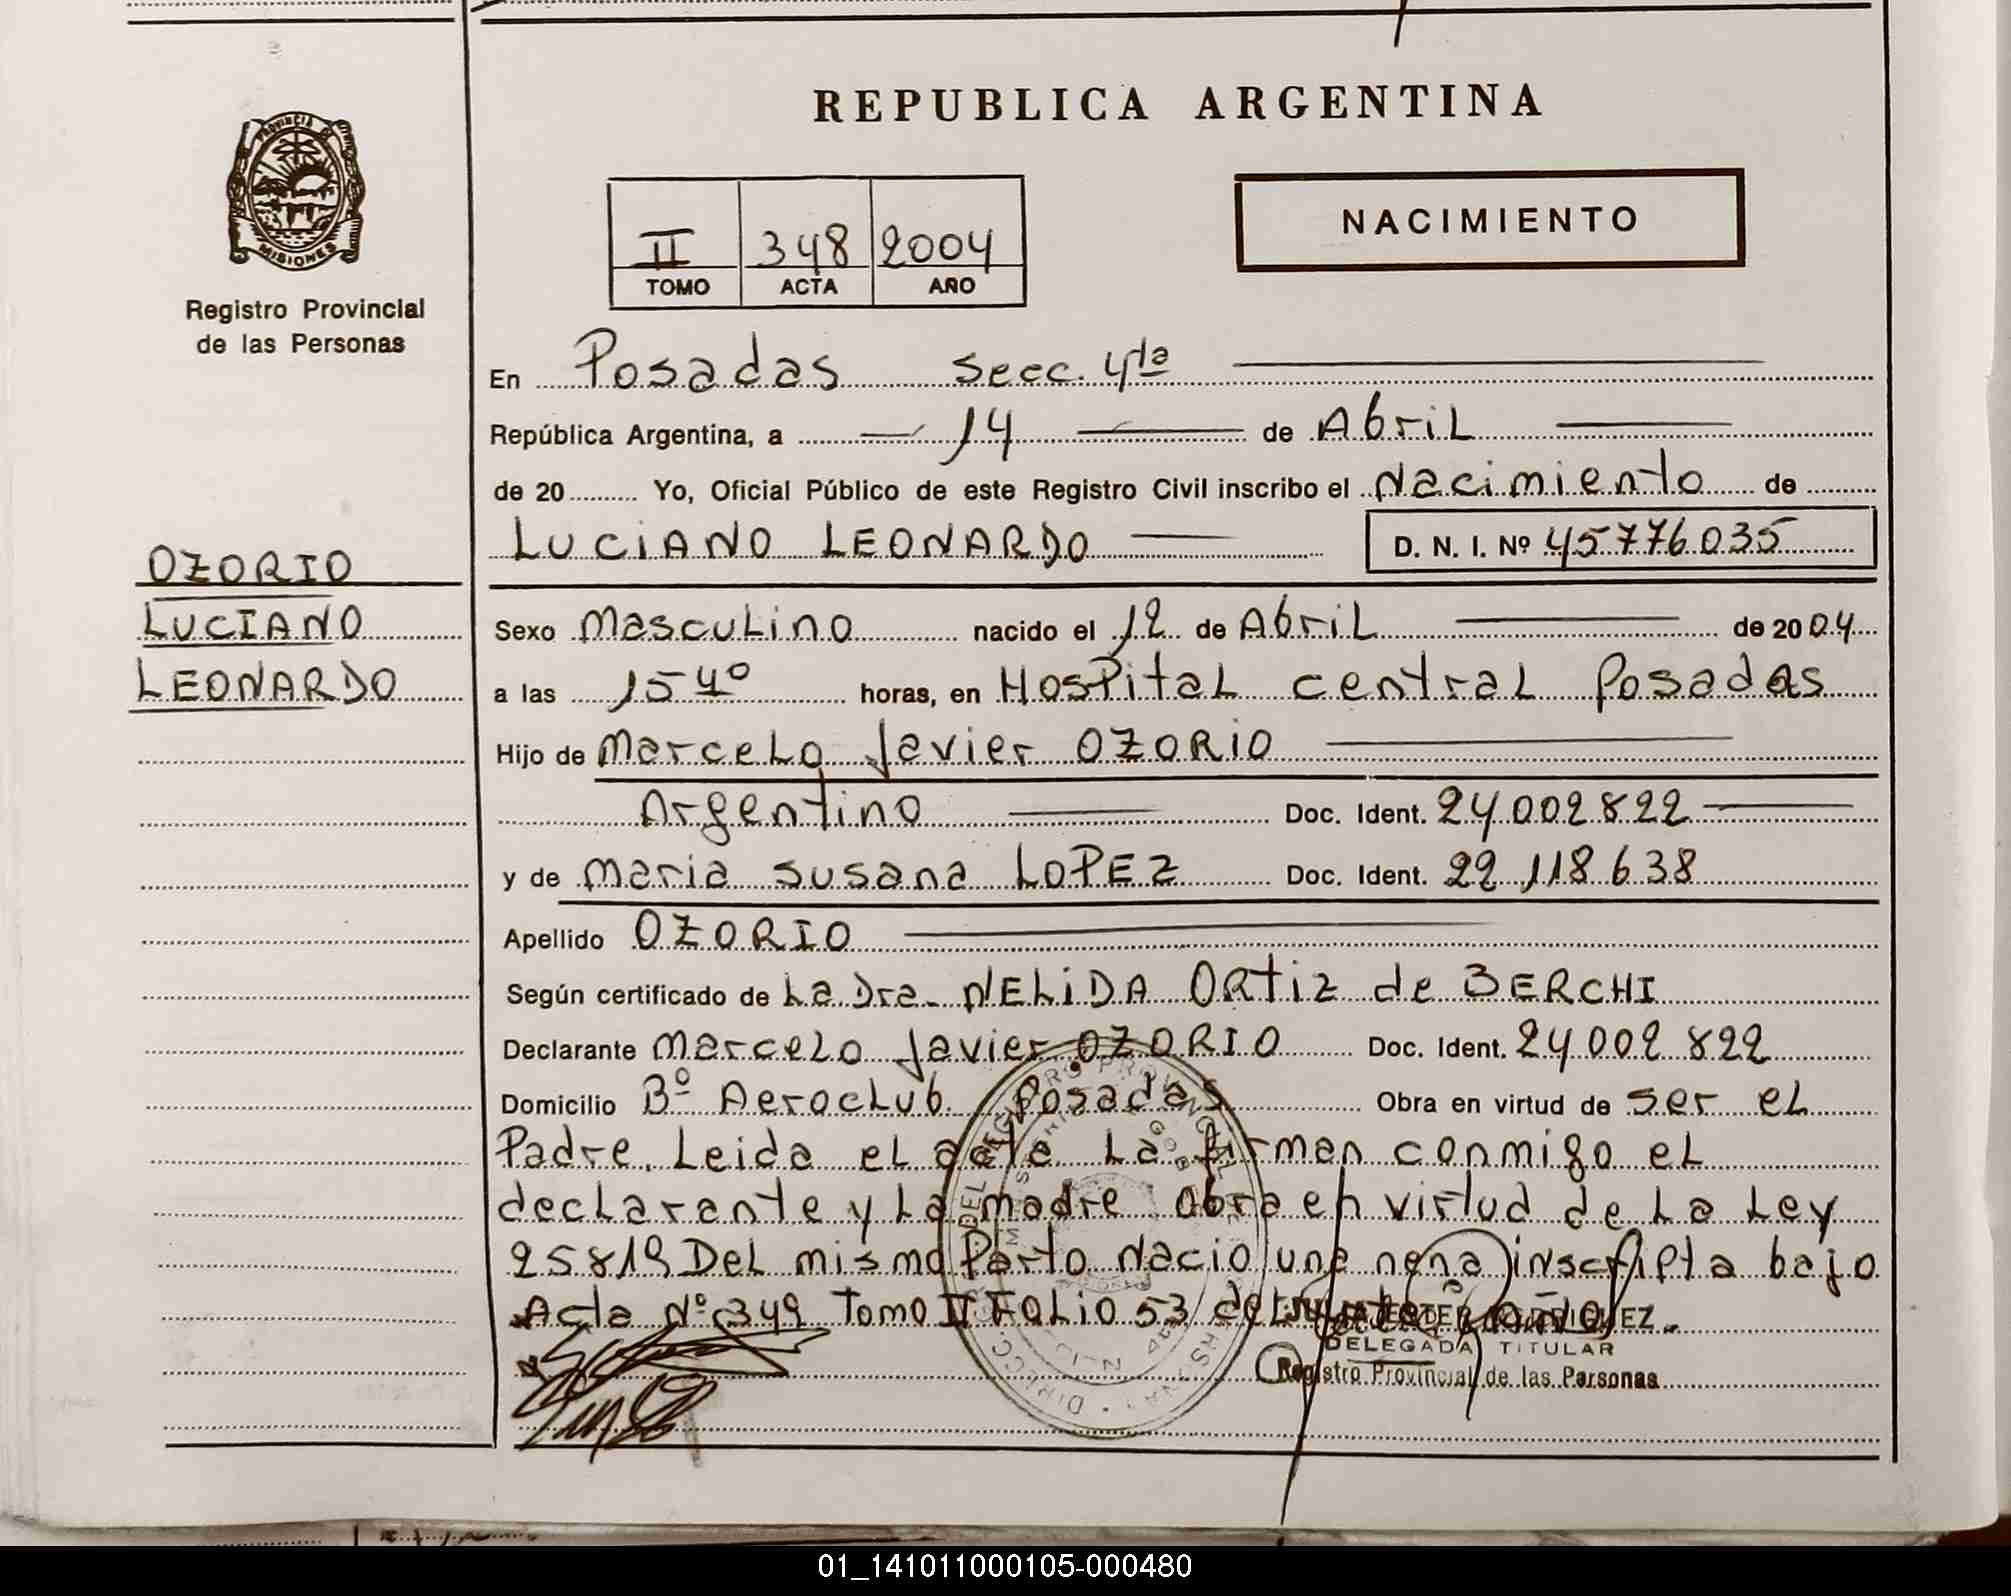 REPUBLICA ARGENTINA
PROVINCIA DE
MISIONES
Registro Provincial
de las Personas
II 348 2004
TOMO ACTA AÑO
NACIMIENTO
En Posadas secc. 4ta
República Argentina, a 14 de Abril
de 20 Yo, Oficial Público de este Registro Civil inscribo el Nacimiento de
LUCIANO LEONARDO D. N. I. Nº 45776035
OZORIO
LUCIANO
LEONARDO
Sexo Masculino nacido el 12 de Abril de 2004
a las 15 40 horas, en Hospital central Posadas
Hijo de Marcelo Javier OZORIO
Argentino Doc. Ident. 24 002 822
y de Maria Susana LOPEZ Doc. Ident. 22 118 638
Apellido OZORIO
Según certificado de La Dra. NELIDA ORTIZ de BERCHI
Declarante Marcelo Javier OZORIO Doc. Ident. 24 002 822
Domicilio Bº Aeroclub Posadas Obra en virtud de ser el
Padre. Leida el acta La firman conmigo el
declarante y La madre obra en virtud de La Ley
25819 Del mismo Parto Nacio una nena inscripta bajo
Acta Nº 349 Tomo II FOLIO 53 del
DELEGADA TITULAR
Registro Provincial de las Personas
01_141011000105-000480